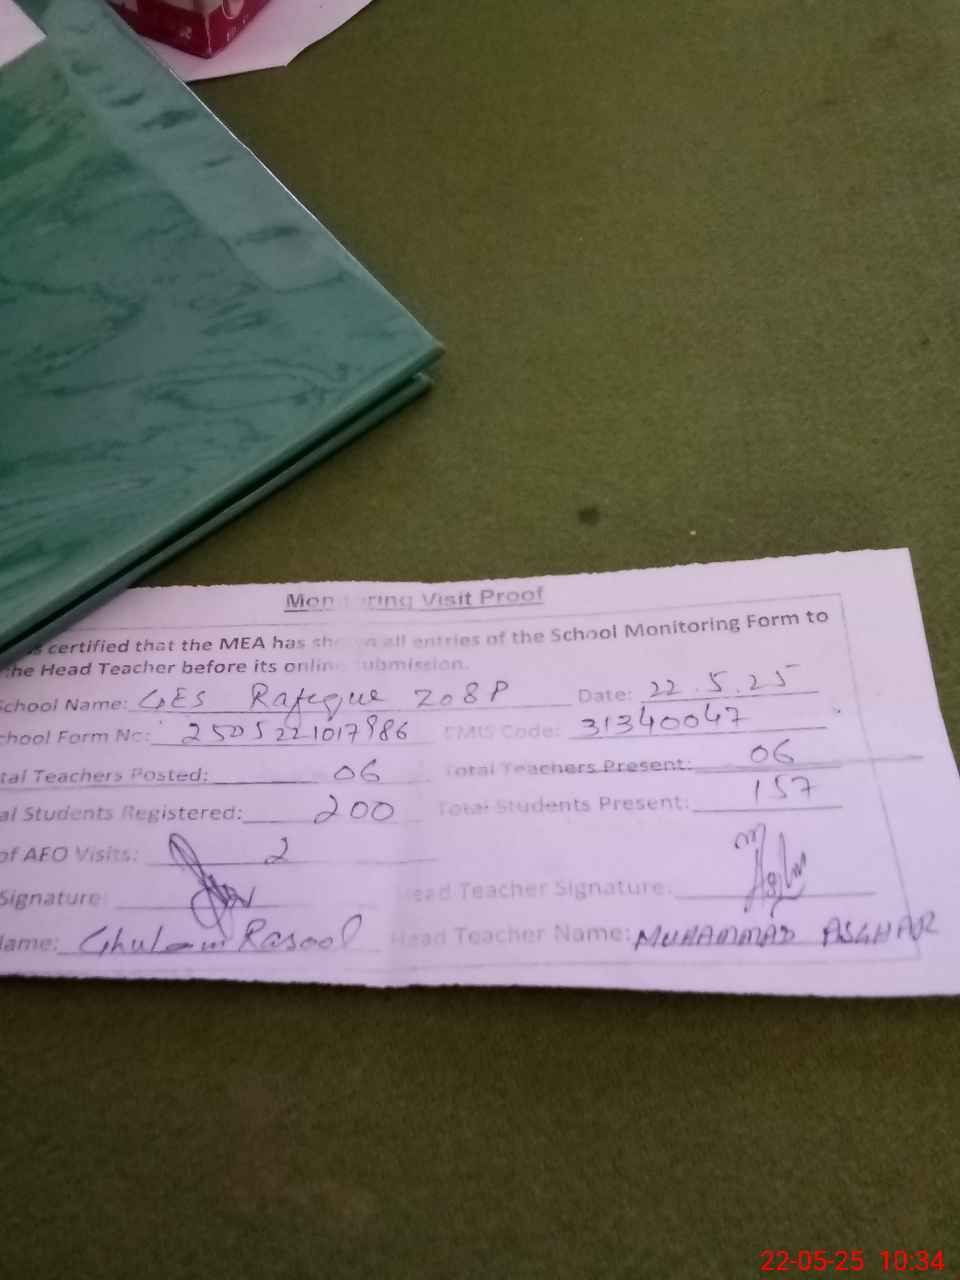 Monitoring Visit Proof
is certified that the MEA has shown all entries of the School Monitoring Form to
the Head Teacher before its online submission.
School Name: GES Rafeque 208P Date: 22.5.25
School Form No: 2505221017986 EMIS Code: 31340047
tal Teachers Posted: 06 Total Teachers Present: 06
al Students Registered: 200 Total Students Present: 157
of AEO Visits: 2
Signature: Head Teacher Signature:
Name: Ghulam Rasool Head Teacher Name: MUHAMMAD ASGHAR
22-05-25 10:34